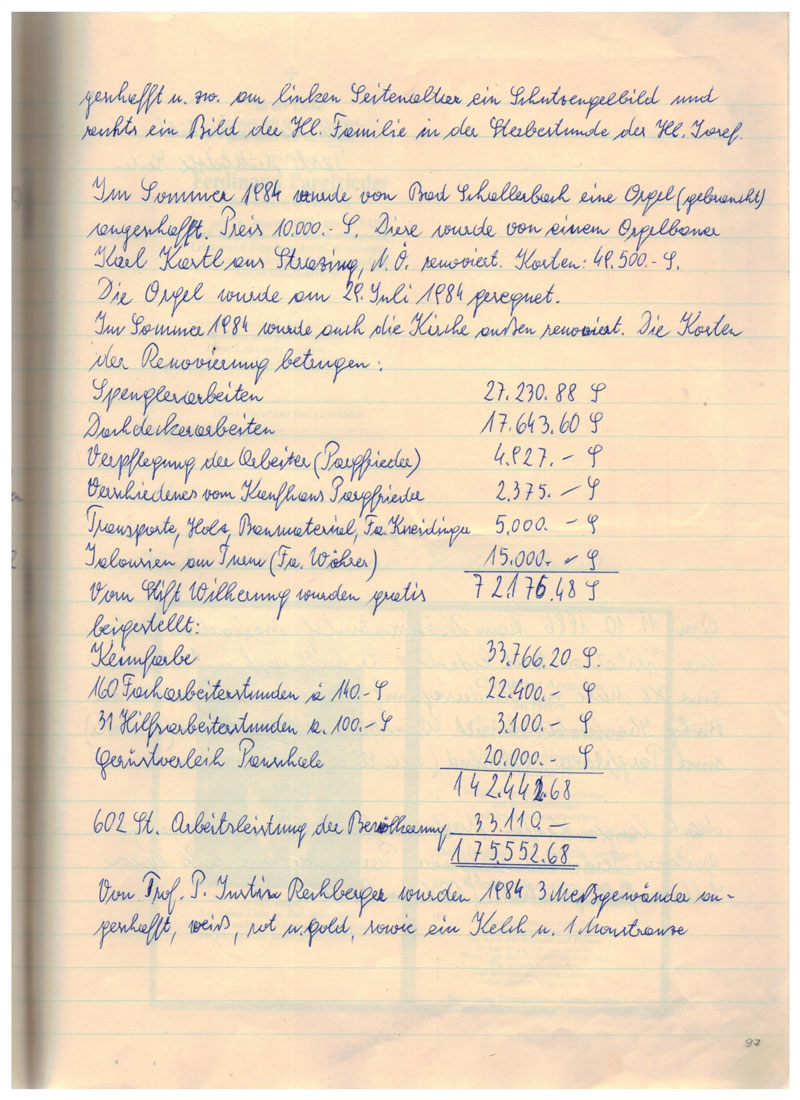 geschafft u. zw. am linken Seitenaltar ein Schutzengelbild und
rechts ein Bild der Hl. Familie in der Sterbestunde des Hl. Josef.
Im Sommer 1984 wurde von Bad Schallerbach eine Orgel (gebraucht)
angeschafft. Preis 10.000.- S. Diese wurde von einem Orgelbauer
Karl Kastl aus Strazing, N.Ö. renoviert. Kosten: 49.500.- S.
Die Orgel wurde am 29. Juli 1984 gesegnet.
Im Sommer 1984 wurde auch die Kirche außen renoviert. Die Kosten
der Renovierung betrugen:
Spenglerarbeiten 27.230.88 S
Dachdeckerarbeiten 17.643.60 S
Verpflegung der Arbeiter (Pargfrieder) 4.927.- S
Verschiedenes vom Kaufhaus Pargfrieder 2.375. - S
Transporte, Holz, Baumaterial, Fa. Kneidinger 5.000. - S
Jalousien am Turm (Fa. Wöhrer) 15.000.- S
Vom Stift Wilherung wurden gratis 72.176.48 S
beigestellt:
Keimfarbe 33.766.20 S.
160 Facharbeiterstunden á 140.- S 22.400.- S
31 Hilfsarbeiterstunden á 100.- S 3.100.- S
Gerüstverleih Pauschale 20.000.- S
142.442.68
602 St. Arbeitsleistung der Bevölkerung 33.110.-
175.552.68
Von Prof. P. Justin Rechberger wurden 1984 3 Meßgewänder an-
geschafft, weiß, rot u. gold, sowie ein Kelch u. 1 Monstranze
97